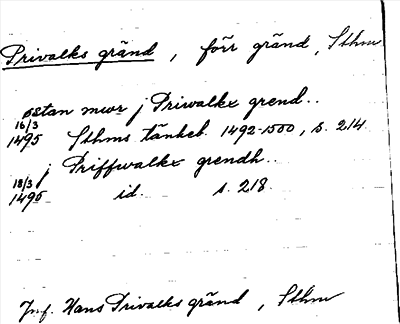 Privalks gränd, förr gränd, Sthm
østan mwr j Priwalkx grend..
16/3 1495 Sthms tänkeb. 1492-1500, s. 214.
j Priffwalkx grendh..
18/3 1495 id. s. 218.
Jmf. Hans Privalks gränd, Sthm